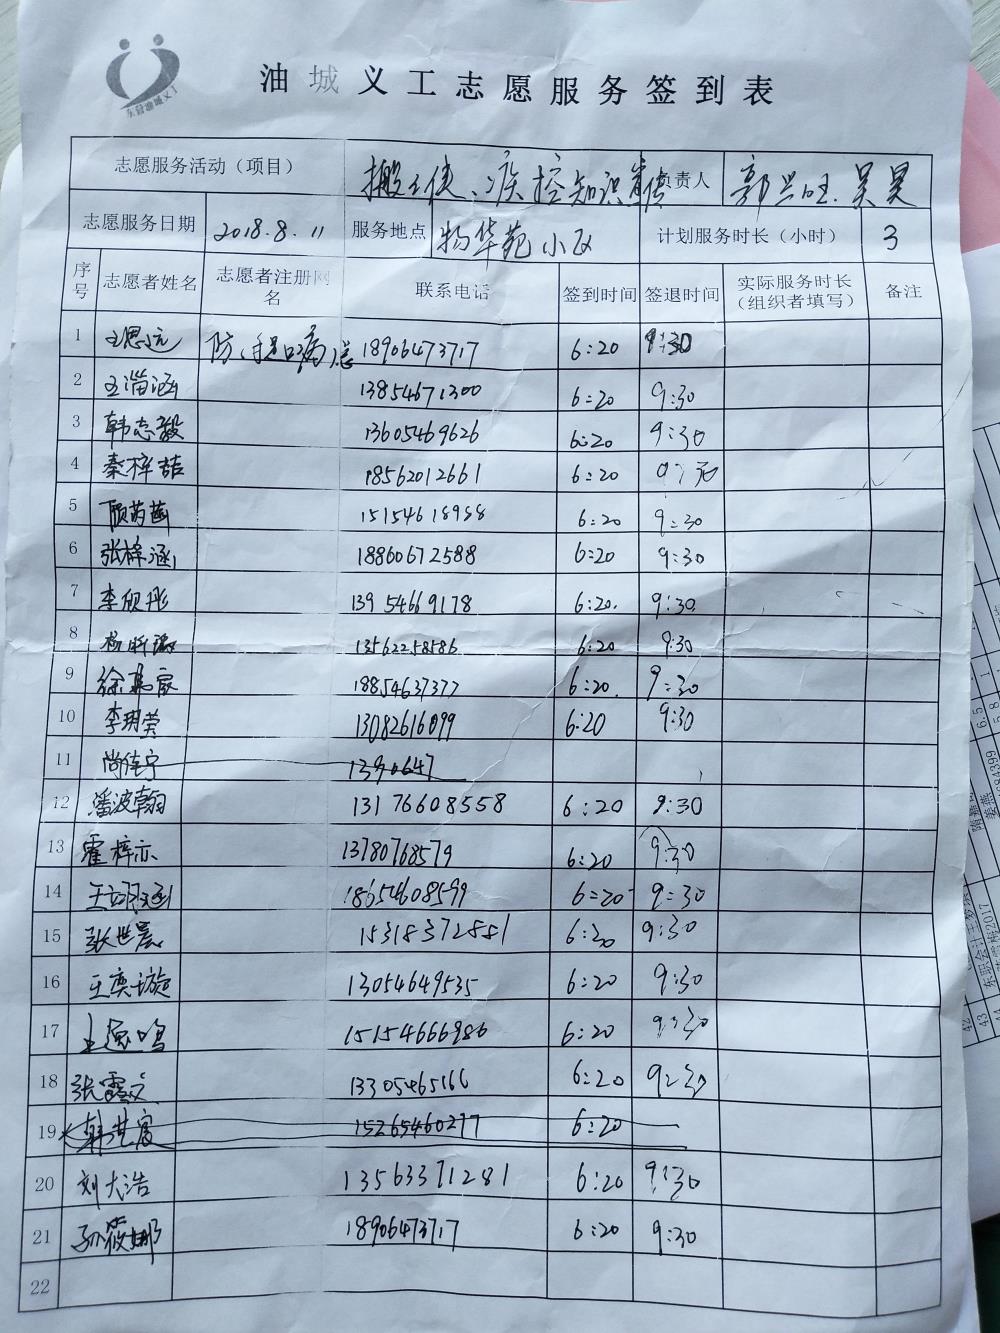 东营油城义工
油城义工志愿服务签到表
志愿服务活动（项目） 搬运侠、疾控知识宣传 负责人 郭兴旺、吴昊
志愿服务日期 2018.8.11 服务地点 物华苑小区 计划服务时长（小时） 3
序号 志愿者姓名 志愿者注册网名 联系电话 签到时间 签退时间 实际服务时长（组织者填写） 备注
1 王思远 18906473717 6:20 9:30
2 13854671300 6:20 9:30
3 韩志毅 13605469626 6:20 9:30
4 秦梓喆 18562012661 6:20
5 6:20 9:30
6 张梓涵 18860672588 6:20 9:30
7 李欣彤 13954669178 6:20 9:30
8 13562258586 6:20 9:30
9 6:20 9:30
10 李玥莹 13082616099 6:20 9:30
11 尚佳宁 1390647
12 潘波翰 13176608558 6:20 9:30
13 霍梓亦 13780768579 6:20 9:30
14 18654608599 6:20 9:30
15 张世晨 15318372881 6:20 9:30
16 王奕璇 13054649535 6:20 9:30
17 15154666986 6:20 9:30
18 张露文 13305465166 6:20 9:30
19 15265460277 6:20
20 刘大浩 13563371281 6:20 9:30
21 孙筱娜 18906473717 6:20 9:30
22